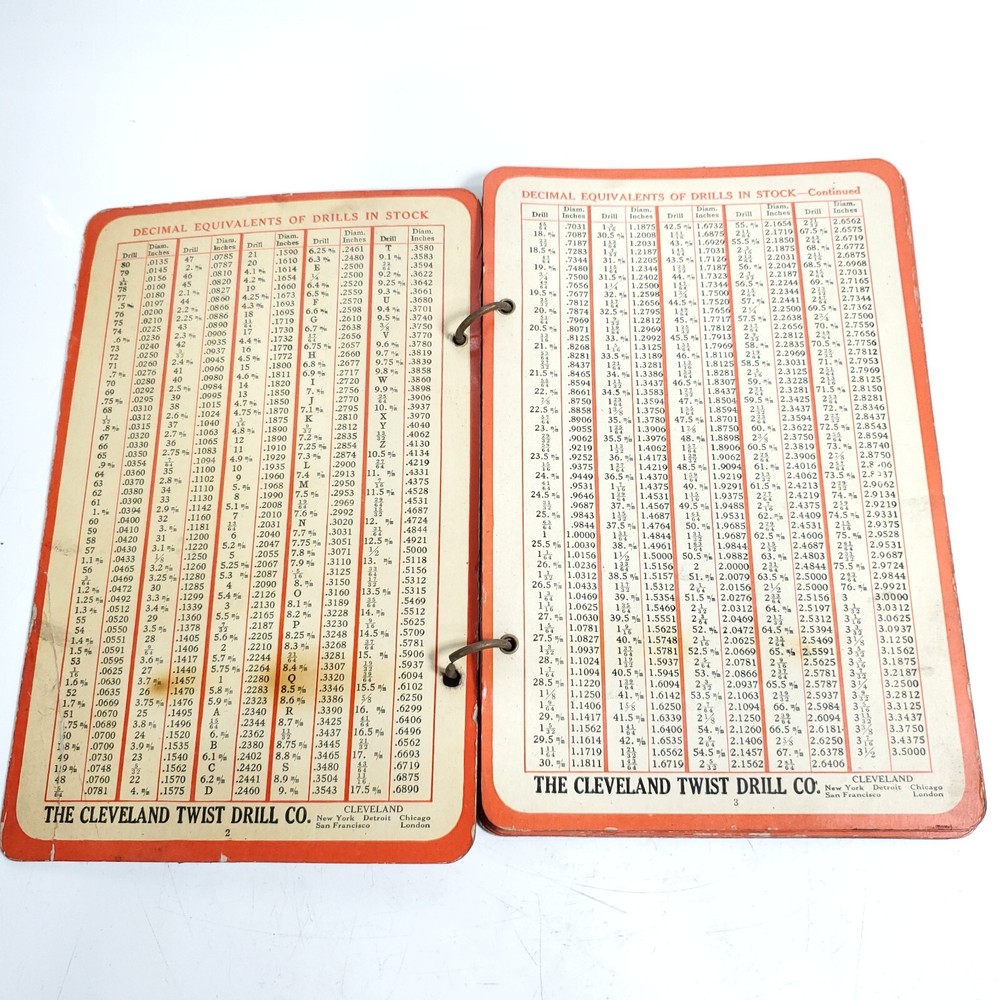 DECIMAL EQUIVALENTS OF DRILLS IN STOCK
Drill Diam. Inches Drill Diam. Inches Drill Diam. Inches Drill Diam. Inches Drill Diam. Inches
80 .0135
79 .0145
1/64 .0156
78 .0160
77 .0180
.5 m/m .0197
76 .0200
75 .0210
74 .0225
.6 m/m .0236
73 .0240
72 .0250
71 .0260
.7 m/m .0276
70 .0280
69 .0292
.75 m/m .0295
68 .0310
1/32 .0312
.8 m/m
67 .0320
66 .0330
65 .0350
.9 m/m .0354
64 .0360
63 .0370
62 .0380
61 .0390
1. m/m .0394
60 .0400
59 .0410
58 .0420
57 .0430
1.1 m/m .0433
56 .0465
3/64 .0469
1.2 m/m .0472
1.25 m/m .0492
1.3 m/m .0512
55 .0520
54 .0550
1.4 m/m .0551
1.5 m/m .0591
53 .0595
1/16 .0625
1.6 m/m .0630
52 .0635
1.7 m/m .0669
51 .0670
.75 m/m .0689
.0700
.0709
49 .0730
.0748
48 .0760
5/64 .0781
47 .0785
2. m/m .0787
46 .0810
45 .0820
2.1 m/m .0827
44 .0860
2.2 m/m .0866
2.25 m/m .0886
43 .0890
2.3 m/m .0906
42 .0935
3/32 .0937
2.4 m/m .0945
41 .0960
40 .0980
2.5 m/m .0984
39 .0995
38 .1015
2.6 m/m .1024
37 .1040
2.7 m/m .1063
36 .1065
2.75 m/m .1083
7/64 .1094
35 .1100
2.8 m/m .1102
34 .1110
33 .1130
2.9 m/m .1142
32 .1160
3. m/m .1181
31 .1200
3.1 m/m .1220
1/8 .1250
3.2 m/m .1260
3.25 m/m .1280
30 .1285
3.3 m/m .1299
3.4 m/m .1339
29 .1360
3.5 m/m .1378
28 .1405
9/64 .1406
3.6 m/m .1417
27 .1440
3.7 m/m .1457
26 .1470
3.75 m/m .1476
25 .1495
3.8 m/m .1496
24 .1520
3.9 m/m .1535
23 .1540
5/32 .1562
22 .1570
4. m/m .1575
21 .1590
20 .1610
4.1 m/m .1614
4.2 m/m .1654
19 .1660
4.25 m/m .1673
4.3 m/m .1693
18 .1695
11/64 .1719
17 .1730
4.4 m/m .1732
16 .1770
4.5 m/m .1772
15 .1800
4.6 m/m .1811
14 .1820
13 .1850
4.7 m/m .1850
4.75 m/m .1870
3/16
4.8 m/m .1890
12 .1890
11 .1910
4.9 m/m .1929
10 .1935
9 .1960
5. m/m .1968
8 .1990
5.1 m/m .2008
7 .2010
13/64 .2031
6 .2040
5.2 m/m .2047
5 .2055
5.25 m/m .2067
5.3 m/m .2087
4 .2090
5.4 m/m .2126
3 .2130
5.5 m/m .2165
7/32 .2187
5.6 m/m .2205
2 .2210
5.7 m/m .2244
5.75 m/m .2264
1 .2280
5.8 m/m .2283
5.9 m/m .2323
A .2340
15/64 .2344
6. m/m .2362
B .2380
6.1 m/m .2402
C .2420
6.2 m/m .2441
D .2460
6.25 m/m .2461
6.3 m/m .2480
E .2500
1/4 .2500
6.4 m/m .2520
6.5 m/m .2559
F .2570
6.6 m/m .2598
G .2610
6.7 m/m .2638
17/64 .2656
6.75 m/m .2657
H .2660
6.8 m/m .2677
6.9 m/m .2717
I .2720
7. m/m .2756
J .2770
7.1 m/m .2795
K .2810
9/32 .2812
7.2 m/m .2835
7.25 m/m .2854
7.3 m/m .2874
L .2900
7.4 m/m .2913
M .2950
7.5 m/m .2953
19/64 .2969
7.6 m/m .2992
N .3020
7.7 m/m .3031
7.75 m/m .3051
7.8 m/m .3071
7.9 m/m .3110
5/16 .3125
8. m/m .3150
O .3160
8.1 m/m .3189
8.2 m/m .3228
P .3230
8.25 m/m .3248
8.3 m/m .3268
21/64 .3281
8.4 m/m .3307
Q .3320
8.5 m/m .3346
8.6 m/m .3386
R .3390
8.7 m/m .3425
11/32 .3437
8.75 m/m .3445
8.8 m/m .3465
S .3480
8.9 m/m .3504
9. m/m .3543
T .3580
9.1 m/m .3583
23/64 .3594
9.2 m/m .3622
9.25 m/m .3642
9.3 m/m .3661
U .3680
9.4 m/m .3701
9.5 m/m .3740
3/8 .3750
V .3770
9.6 m/m .3780
9.7 m/m .3819
9.75 m/m .3839
9.8 m/m .3858
W .3860
9.9 m/m .3898
25/64 .3906
10. m/m .3937
X .3970
Y .4040
13/32 .4062
Z .4130
10.5 m/m .4134
27/64 .4219
11. m/m .4331
7/16 .4375
11.5 m/m .4528
29/64 .4531
15/32 .4687
12. m/m .4724
31/64 .4844
12.5 m/m .4921
1/2 .5000
13. m/m .5118
33/64 .5156
17/32 .5312
13.5 m/m .5315
35/64 .5469
14. m/m .5512
9/16 .5625
14.5 m/m .5709
37/64 .5781
15. m/m .5906
19/32 .5937
39/64 .6094
15.5 m/m .6102
5/8 .6250
16. m/m .6299
41/64 .6406
16.5 m/m .6496
21/32 .6562
17. m/m .6693
43/64 .6719
11/16 .6875
17.5 m/m .6890
THE CLEVELAND TWIST DRILL CO.
CLEVELAND
New York Detroit Chicago
San Francisco London
2
DECIMAL EQUIVALENTS OF DRILLS IN STOCK—Continued
Drill Diam. Inches Drill Diam. Inches Drill Diam. Inches Drill Diam. Inches Drill Diam. Inches
45/64 .7031
18. m/m .7087
23/32 .7187
18.5 m/m .7283
47/64 .7344
19. m/m .7480
3/4 .7500
49/64 .7656
19.5 m/m .7677
25/32 .7812
20. m/m .7874
51/64 .7969
20.5 m/m .8071
13/16 .8125
21. m/m .8268
53/64 .8281
27/32 .8437
21.5 m/m .8465
55/64 .8594
22. m/m .8661
7/8 .8750
22.5 m/m .8858
57/64 .8906
23. m/m .9055
29/32 .9062
59/64 .9219
23.5 m/m .9252
15/16 .9375
24. m/m .9449
61/64 .9531
24.5 m/m .9646
31/32 .9687
25. m/m .9843
63/64 .9844
1 1.0000
25.5 m/m 1.0039
1 1/64 1.0156
26. m/m 1.0236
1 1/32 1.0312
26.5 m/m 1.0433
1 3/64 1.0469
1 1/16 1.0625
27. m/m 1.0630
1 5/64 1.0781
27.5 m/m 1.0827
1 3/32 1.0937
28. m/m 1.1024
1 7/64 1.1094
28.5 m/m 1.1220
1 1/8 1.1250
1 9/64 1.1406
29. m/m 1.1417
1 5/32 1.1562
29.5 m/m 1.1614
1 11/64 1.1719
30. m/m 1.1811
1 3/16 1.1875
30.5 m/m 1.2008
1 13/64 1.2031
1 7/32 1.2187
31. m/m 1.2205
1 15/64 1.2344
31.5 m/m 1.2402
1 1/4 1.2500
32. m/m 1.2598
1 17/64 1.2656
32.5 m/m 1.2795
1 9/32 1.2812
1 19/64 1.2969
33. m/m 1.2992
1 5/16 1.3125
33.5 m/m 1.3189
1 21/64 1.3281
34. m/m 1.3386
1 11/32 1.3437
34.5 m/m 1.3583
1 23/64 1.3594
1 3/8 1.3750
35. m/m 1.3780
1 25/64 1.3906
35.5 m/m 1.3976
1 13/32 1.4062
36. m/m 1.4173
1 27/64 1.4219
36.5 m/m 1.4370
1 7/16 1.4375
1 29/64 1.4531
37. m/m 1.4567
1 15/32 1.4687
37.5 m/m 1.4764
1 31/64 1.4844
38. m/m 1.4961
1 1/2 1.5000
1 33/64 1.5156
38.5 m/m 1.5157
1 17/32 1.5312
39. m/m 1.5354
1 35/64 1.5469
39.5 m/m 1.5551
1 9/16 1.5625
40. m/m 1.5748
1 37/64 1.5781
1 19/32 1.5937
40.5 m/m 1.5945
1 39/64 1.6094
41. m/m 1.6142
1 5/8 1.6250
41.5 m/m 1.6339
1 41/64 1.6406
42. m/m 1.6535
1 21/32 1.6562
1 43/64 1.6719
42.5 m/m 1.6732
1 11/16 1.6875
43. m/m 1.6929
1 45/64 1.7031
43.5 m/m 1.7126
1 23/32 1.7187
44. m/m 1.7323
1 47/64 1.7344
1 3/4 1.7500
44.5 m/m 1.7520
1 49/64 1.7656
45. m/m 1.7717
1 25/32 1.7812
45.5 m/m 1.7913
1 51/64 1.7969
46. m/m 1.8110
1 13/16 1.8125
1 53/64 1.8281
46.5 m/m 1.8307
1 27/32 1.8437
47. m/m 1.8504
1 55/64 1.8594
47.5 m/m 1.8701
1 7/8 1.8750
48. m/m 1.8898
1 57/64 1.8906
1 29/32 1.9062
48.5 m/m 1.9094
1 59/64 1.9219
49. m/m 1.9291
1 15/16 1.9375
49.5 m/m 1.9488
1 61/64 1.9531
50. m/m 1.9685
1 31/32 1.9687
1 63/64 1.9844
50.5 m/m 1.9882
2 2.0000
51. m/m 2.0079
2 1/64 2.0156
51.5 m/m 2.0276
2 1/32 2.0312
2 3/64 2.0469
52. m/m 2.0472
2 1/16 2.0625
52.5 m/m 2.0669
2 5/64 2.0781
53. m/m 2.0866
2 3/32 2.0937
53.5 m/m 2.1063
2 7/64 2.1094
2 1/8 2.1250
54. m/m 2.1260
2 9/64 2.1406
54.5 m/m 2.1457
2 5/32 2.1562
55. m/m 2.1654
2 11/64 2.1719
55.5 m/m 2.1850
2 3/16 2.1875
2 13/64 2.2031
56. m/m 2.2047
2 7/32 2.2187
56.5 m/m 2.2244
2 15/64 2.2344
57. m/m 2.2441
2 1/4 2.2500
57.5 m/m 2.2638
2 17/64 2.2656
2 9/32 2.2812
58. m/m 2.2835
2 19/64 2.2969
58.5 m/m 2.3031
2 5/16 2.3125
59. m/m 2.3228
2 21/64 2.3281
59.5 m/m 2.3425
2 11/32 2.3437
2 23/64 2.3594
60. m/m 2.3622
2 3/8 2.3750
60.5 m/m 2.3819
2 25/64 2.3906
61. m/m 2.4016
2 13/32 2.4062
61.5 m/m 2.4213
2 27/64 2.4219
2 7/16 2.4375
62. m/m 2.4409
2 29/64 2.4531
62.5 m/m 2.4606
2 15/32 2.4687
63. m/m 2.4803
2 31/64 2.4844
63.5 m/m 2.5000
2 1/2 2.5000
2 33/64 2.5156
64. m/m 2.5197
2 17/32 2.5312
64.5 m/m 2.5394
2 35/64 2.5469
65. m/m 2.5591
2 9/16 2.5625
2 37/64 2.5781
65.5 m/m 2.5787
2 19/32 2.5937
66. m/m 2.5984
2 39/64 2.6094
66.5 m/m 2.6181
2 5/8 2.6250
67. m/m 2.6378
2 41/64 2.6406
2 21/32 2.6562
67.5 m/m 2.6575
2 43/64 2.6719
68. m/m 2.6772
2 11/16 2.6875
68.5 m/m 2.6968
2 45/64 2.7031
69. m/m 2.7165
2 23/32 2.7187
2 47/64 2.7344
69.5 m/m 2.7362
2 3/4 2.7500
70. m/m 2.7559
2 49/64 2.7656
70.5 m/m 2.7756
2 25/32 2.7812
71. m/m 2.7953
2 51/64 2.7969
2 13/16 2.8125
71.5 m/m 2.8150
2 53/64 2.8281
72. m/m 2.8346
2 27/32 2.8437
72.5 m/m 2.8543
2 55/64 2.8594
73. m/m 2.8740
2 7/8 2.8750
2 57/64
73.5 m/m
2 29/32 2.9062
74. m/m 2.9134
2 59/64 2.9219
74.5 m/m 2.9331
2 15/16 2.9375
75. m/m 2.9528
2 61/64 2.9531
2 31/32 2.9687
75.5 m/m 2.9724
2 63/64 2.9844
76. m/m 2.9921
3 3.0000
3 1/32 3.0312
3 1/16 3.0625
3 3/32 3.0937
3 1/8 3.1250
3 5/32 3.1562
3 3/16 3.1875
3 7/32 3.2187
3 1/4 3.2500
3 9/32 3.2812
3 5/16 3.3125
3 11/32 3.3437
3 3/8 3.3750
3 13/32 3.4062
3 7/16 3.4375
3 1/2 3.5000
THE CLEVELAND TWIST DRILL CO.
CLEVELAND
New York Detroit Chicago
San Francisco London
3